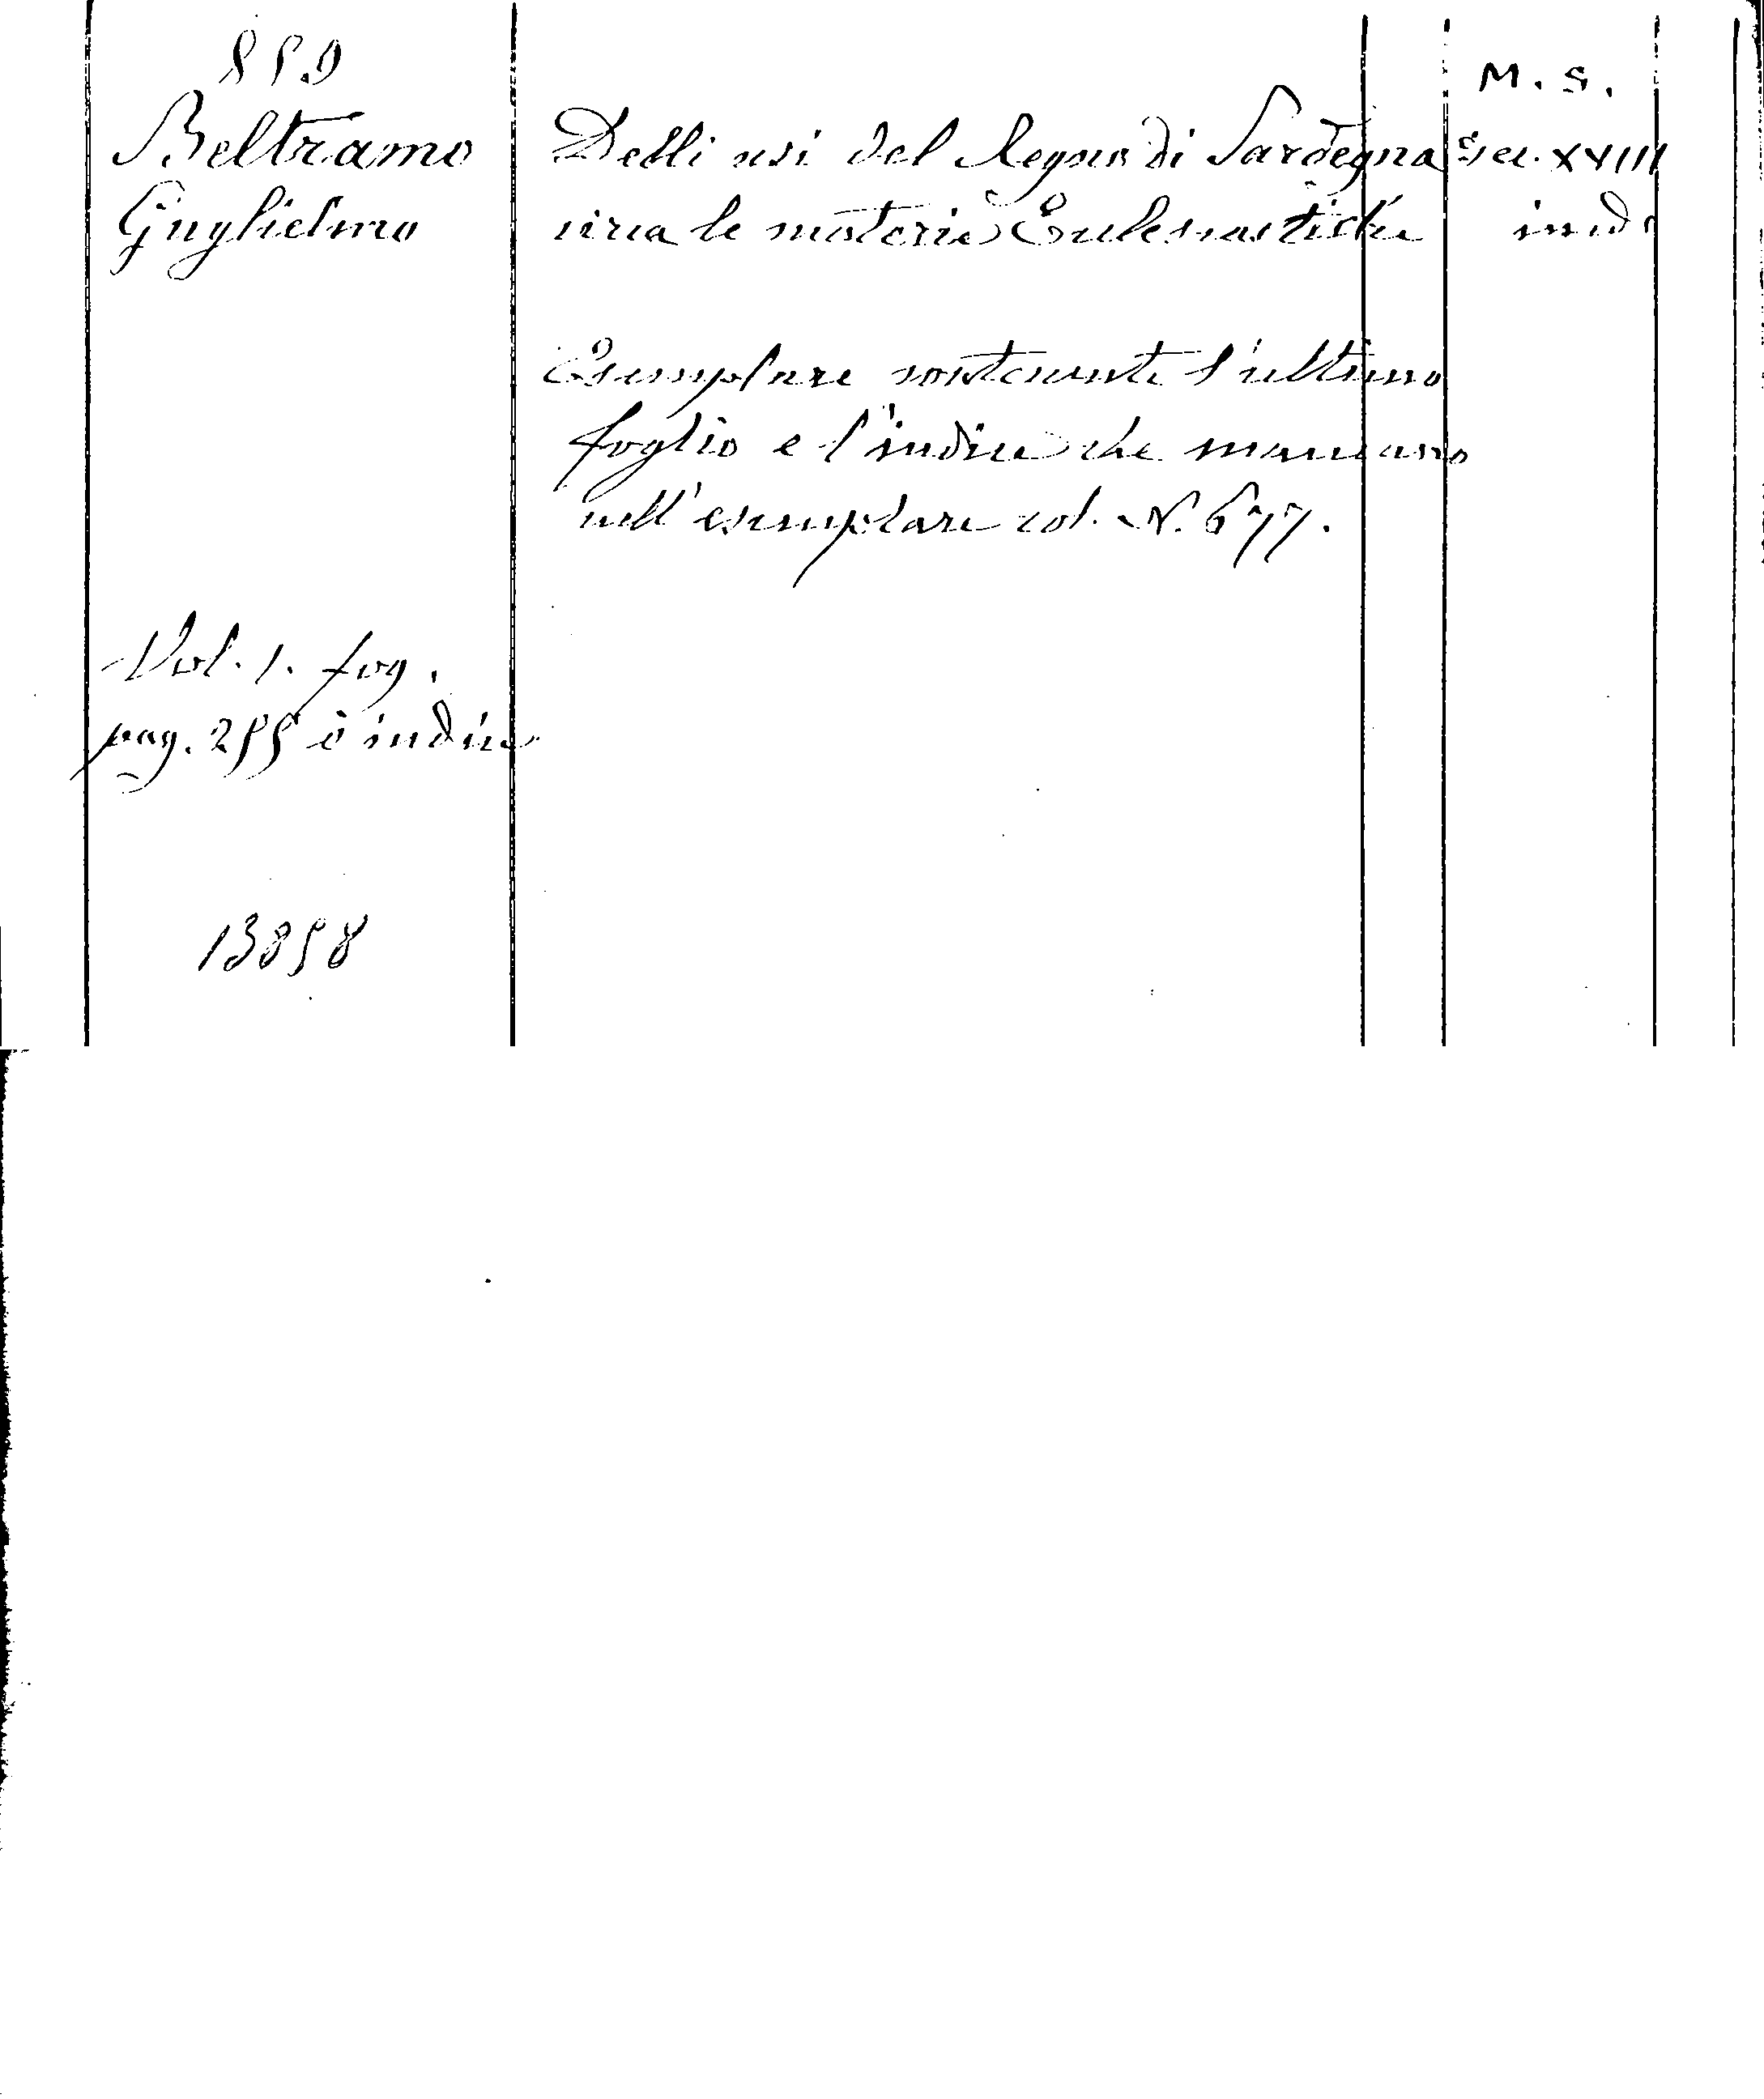 859
Beltramo
Guglielmo
Delli usi del Regno di Sardegna
circa le materie Ecclesiastiche
M. S.
sec. XVIII
in
Esemplare contenente l'ultimo
foglio e l'indice che mancano
nell'esemplare col. N. 677.
Vol. 1. fog.
pag. 255 è indice
13858